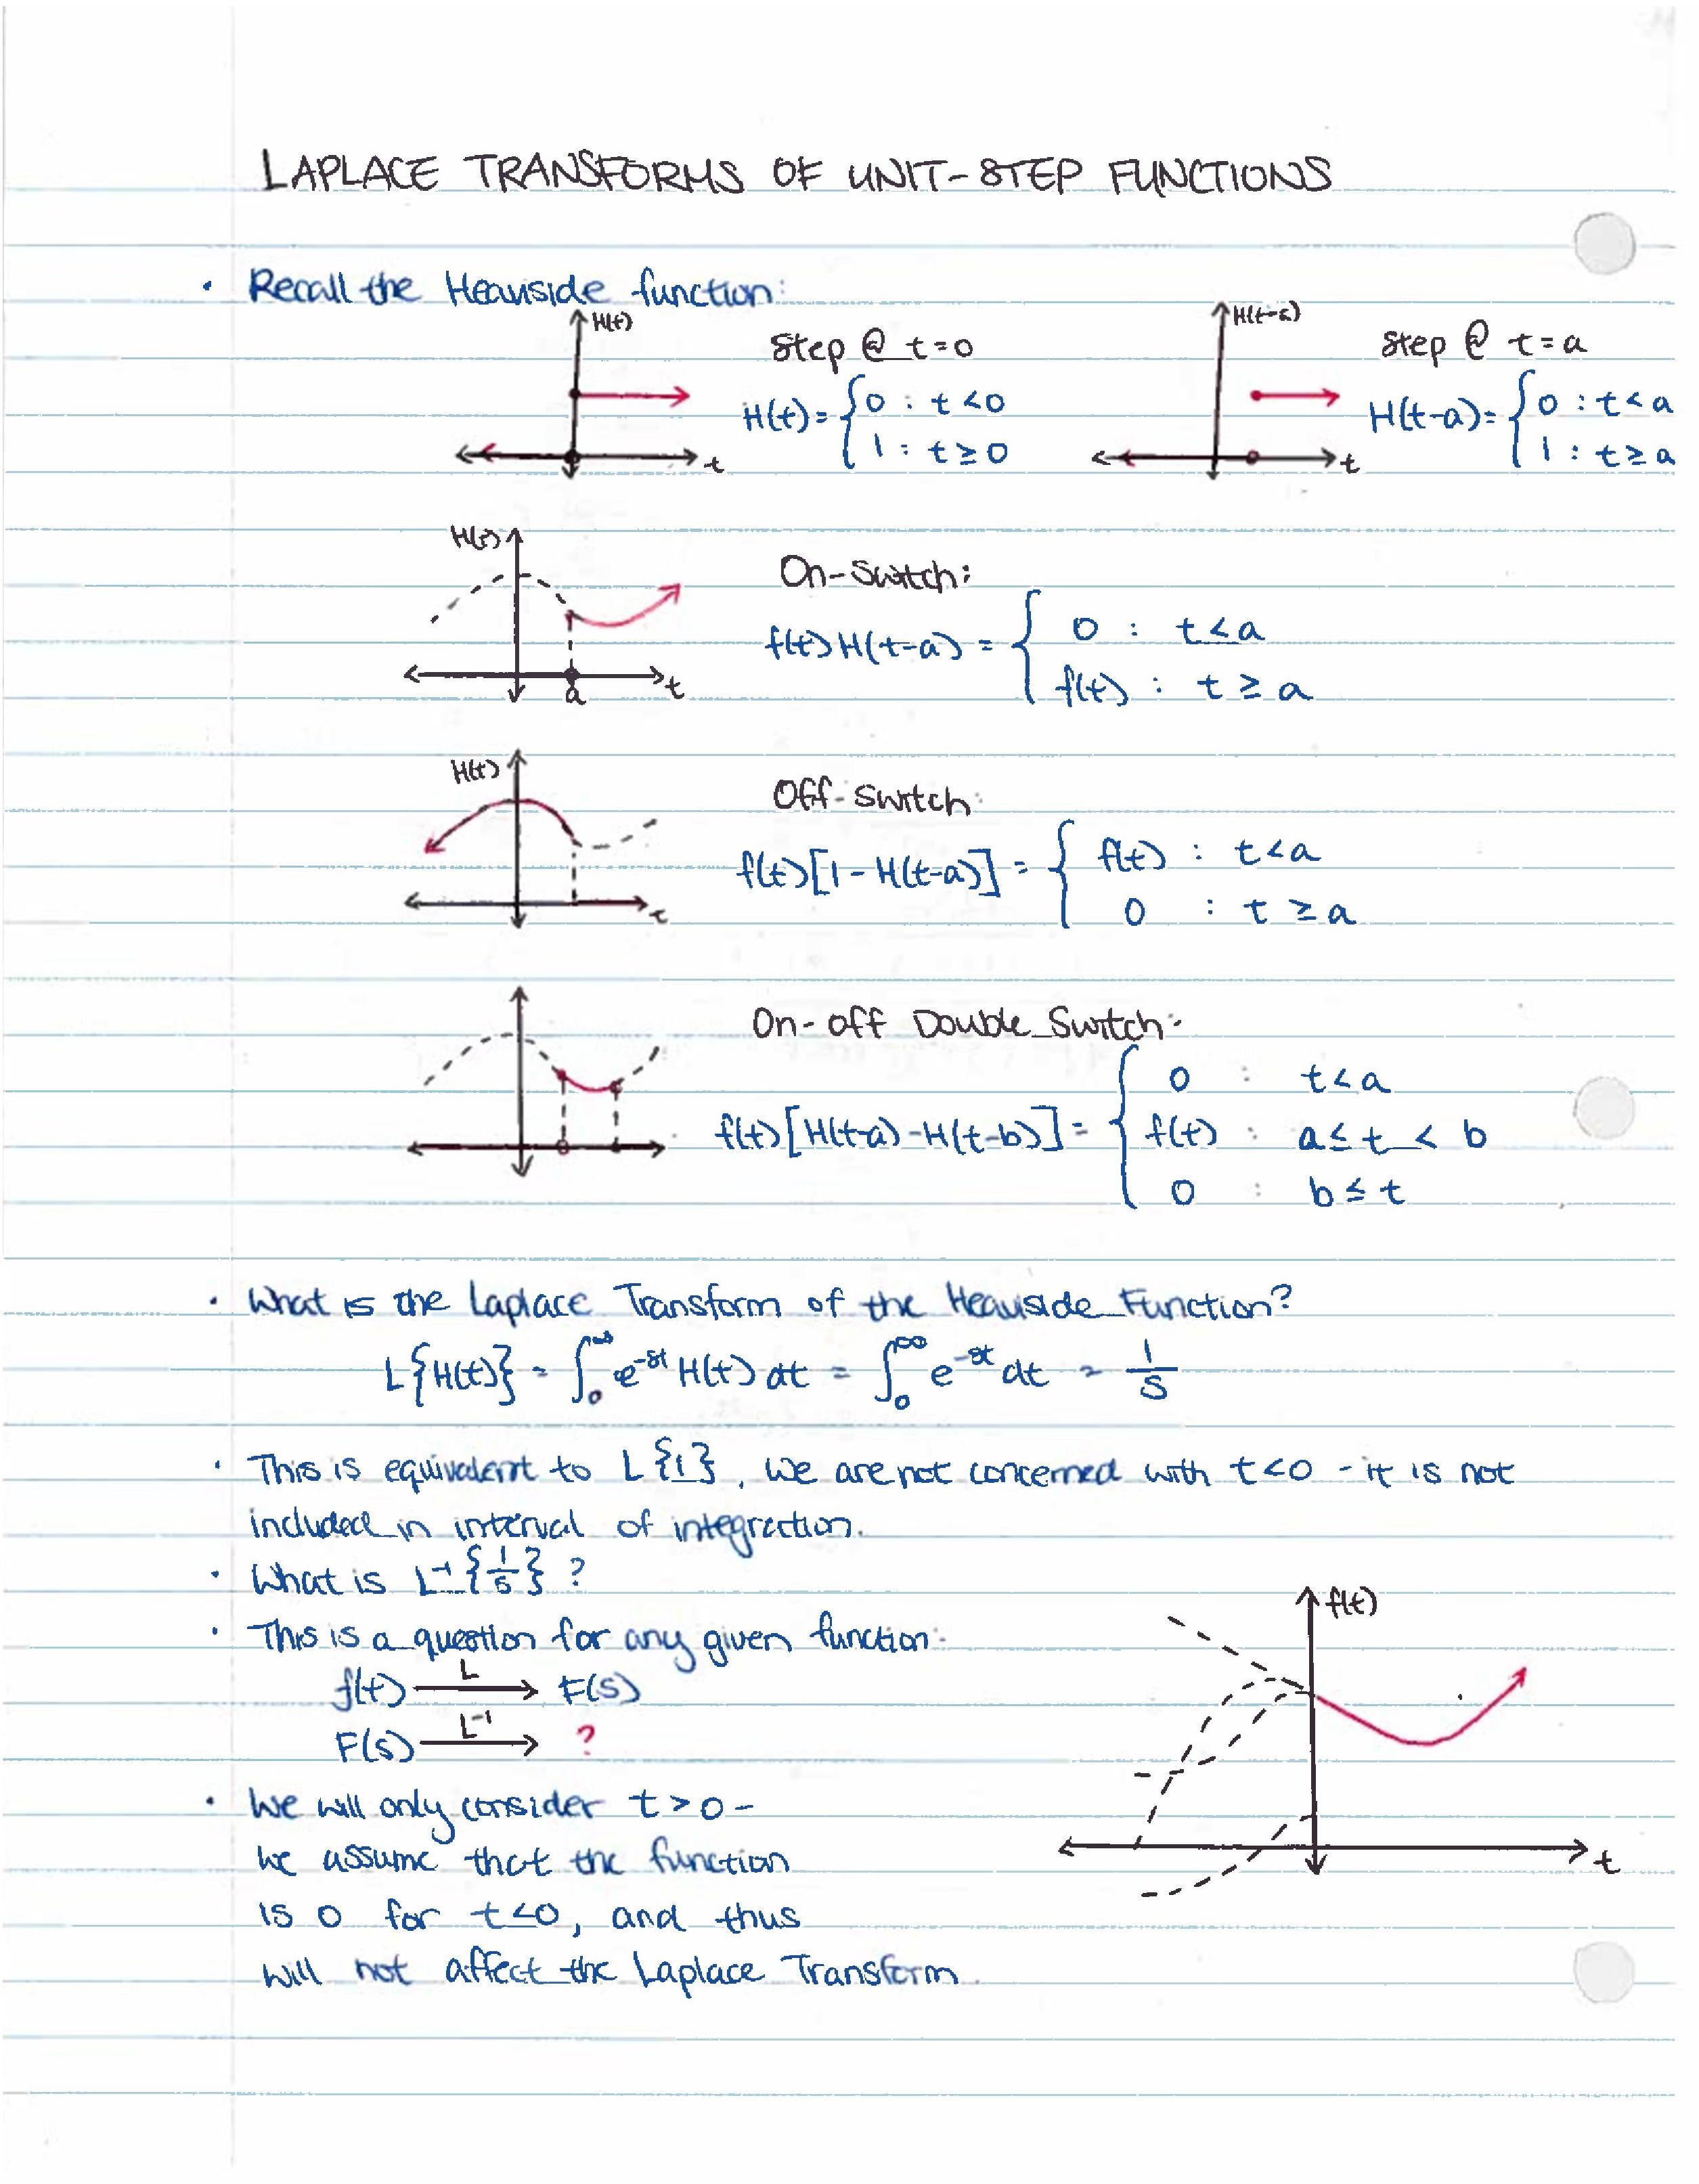 LAPLACE TRANSFORMS OF UNIT-STEP FUNCTIONS
• Recall the Heaviside function:
H(t)
t
Step @ t=0
H(t)= { 0 : t<0
1 : t≥0
H(t-a)
t
Step @ t=a
H(t-a)= { 0 : t<a
1 : t≥a
H(t)
a
t
On-Switch:
f(t)H(t-a) = { 0 : t<a
f(t) : t≥a
H(t)
t
Off-Switch:
f(t)[1-H(t-a)] = { f(t) : t<a
0 : t≥a
On-Off Double Switch:
f(t)[H(t-a)-H(t-b)] = { 0 : t<a
f(t) : a≤t<b
0 : b≤t
• What is the Laplace Transform of the Heaviside Function?
L{H(t)} = ∫₀^∞ e^-st H(t) dt = ∫₀^∞ e^-st dt = 1/s
• This is equivalent to L{1}, we are not concerned with t<0 - it is not
included in interval of integration.
• What is L⁻¹{1/s}?
• This is a question for any given function:
f(t) —L→ F(s)
F(s) —L⁻¹→ ?
• We will only consider t>0 -
we assume that the function
is 0 for t<0, and thus
will not affect the Laplace Transform.
f(t)
t